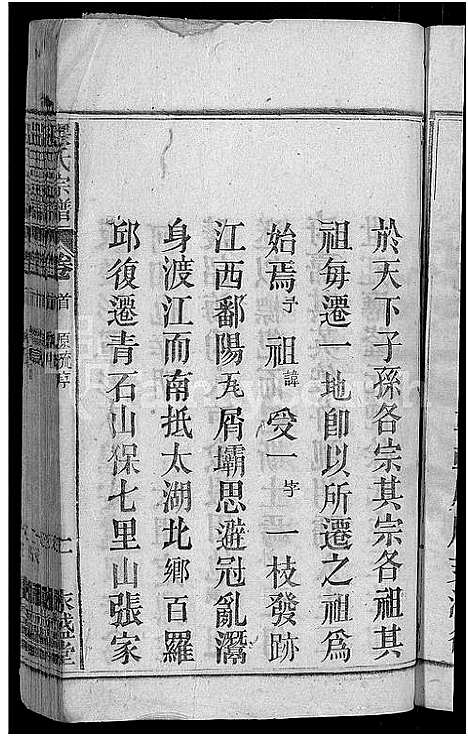 於天下子孫各宗其宗各祖其
祖每遷一地卽以所遷之祖爲
始焉予祖諱受一字一枝發跡
江西鄱陽瓦屑壩思避冠亂灊
身渡江而南抵太湖北鄉百羅
邱復遷青石山保七里山張家
氏宗譜
卷首 源流序
永盛堂